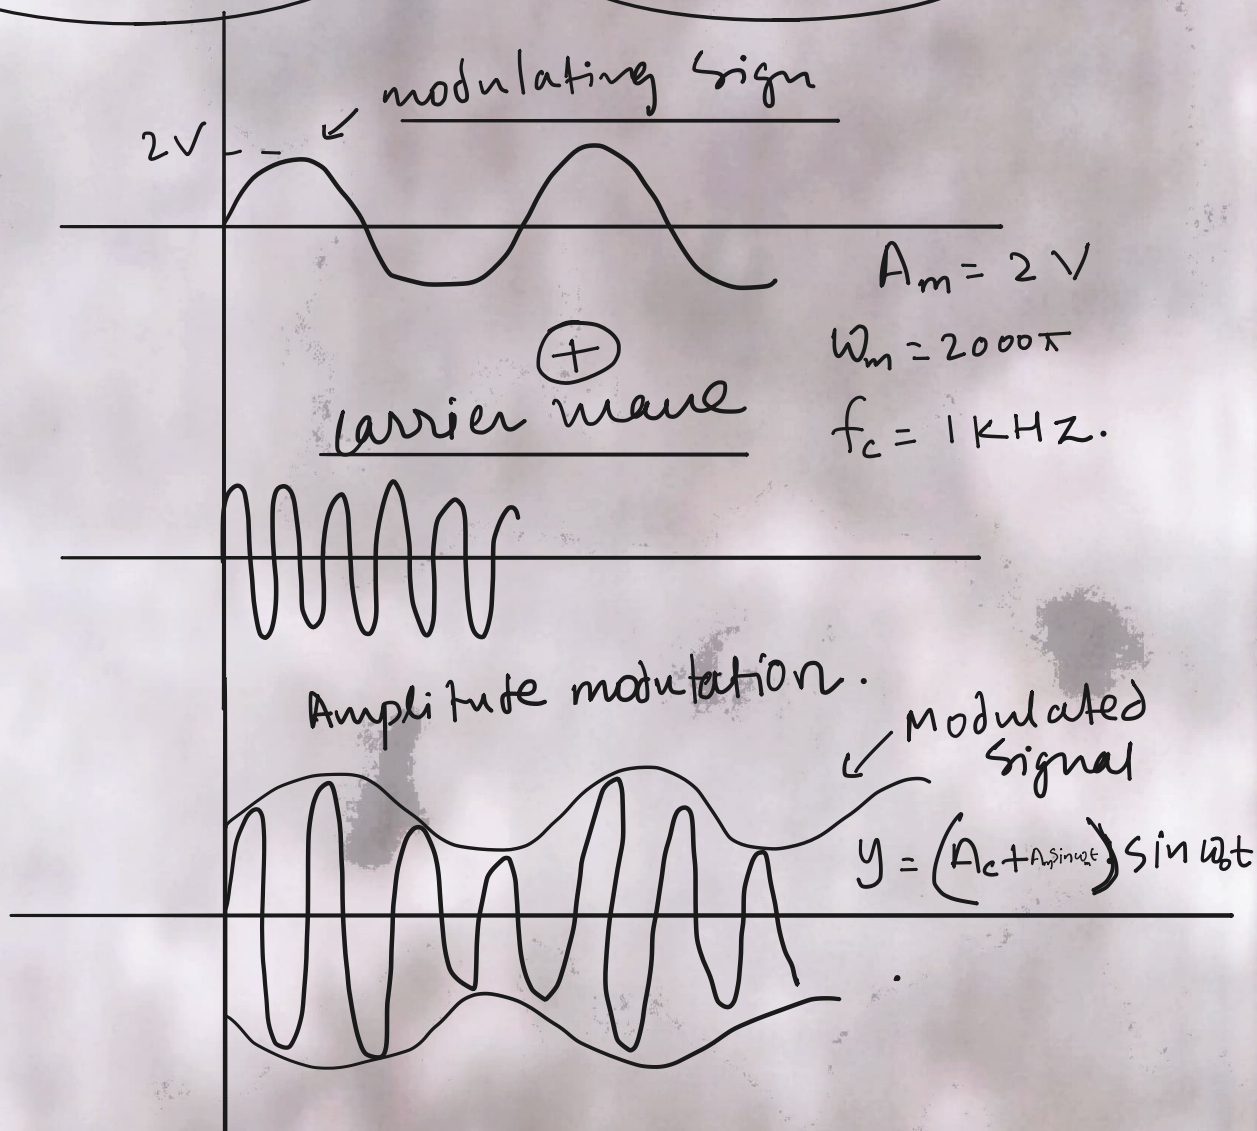 modulating sign
2V
Am = 2 V
ωm = 2000π
fc = 1 KHZ.
+
carrier wave
Amplitute modutation.
Modulated
signal
y = (Ac + Am sin ωmt) sin ωct